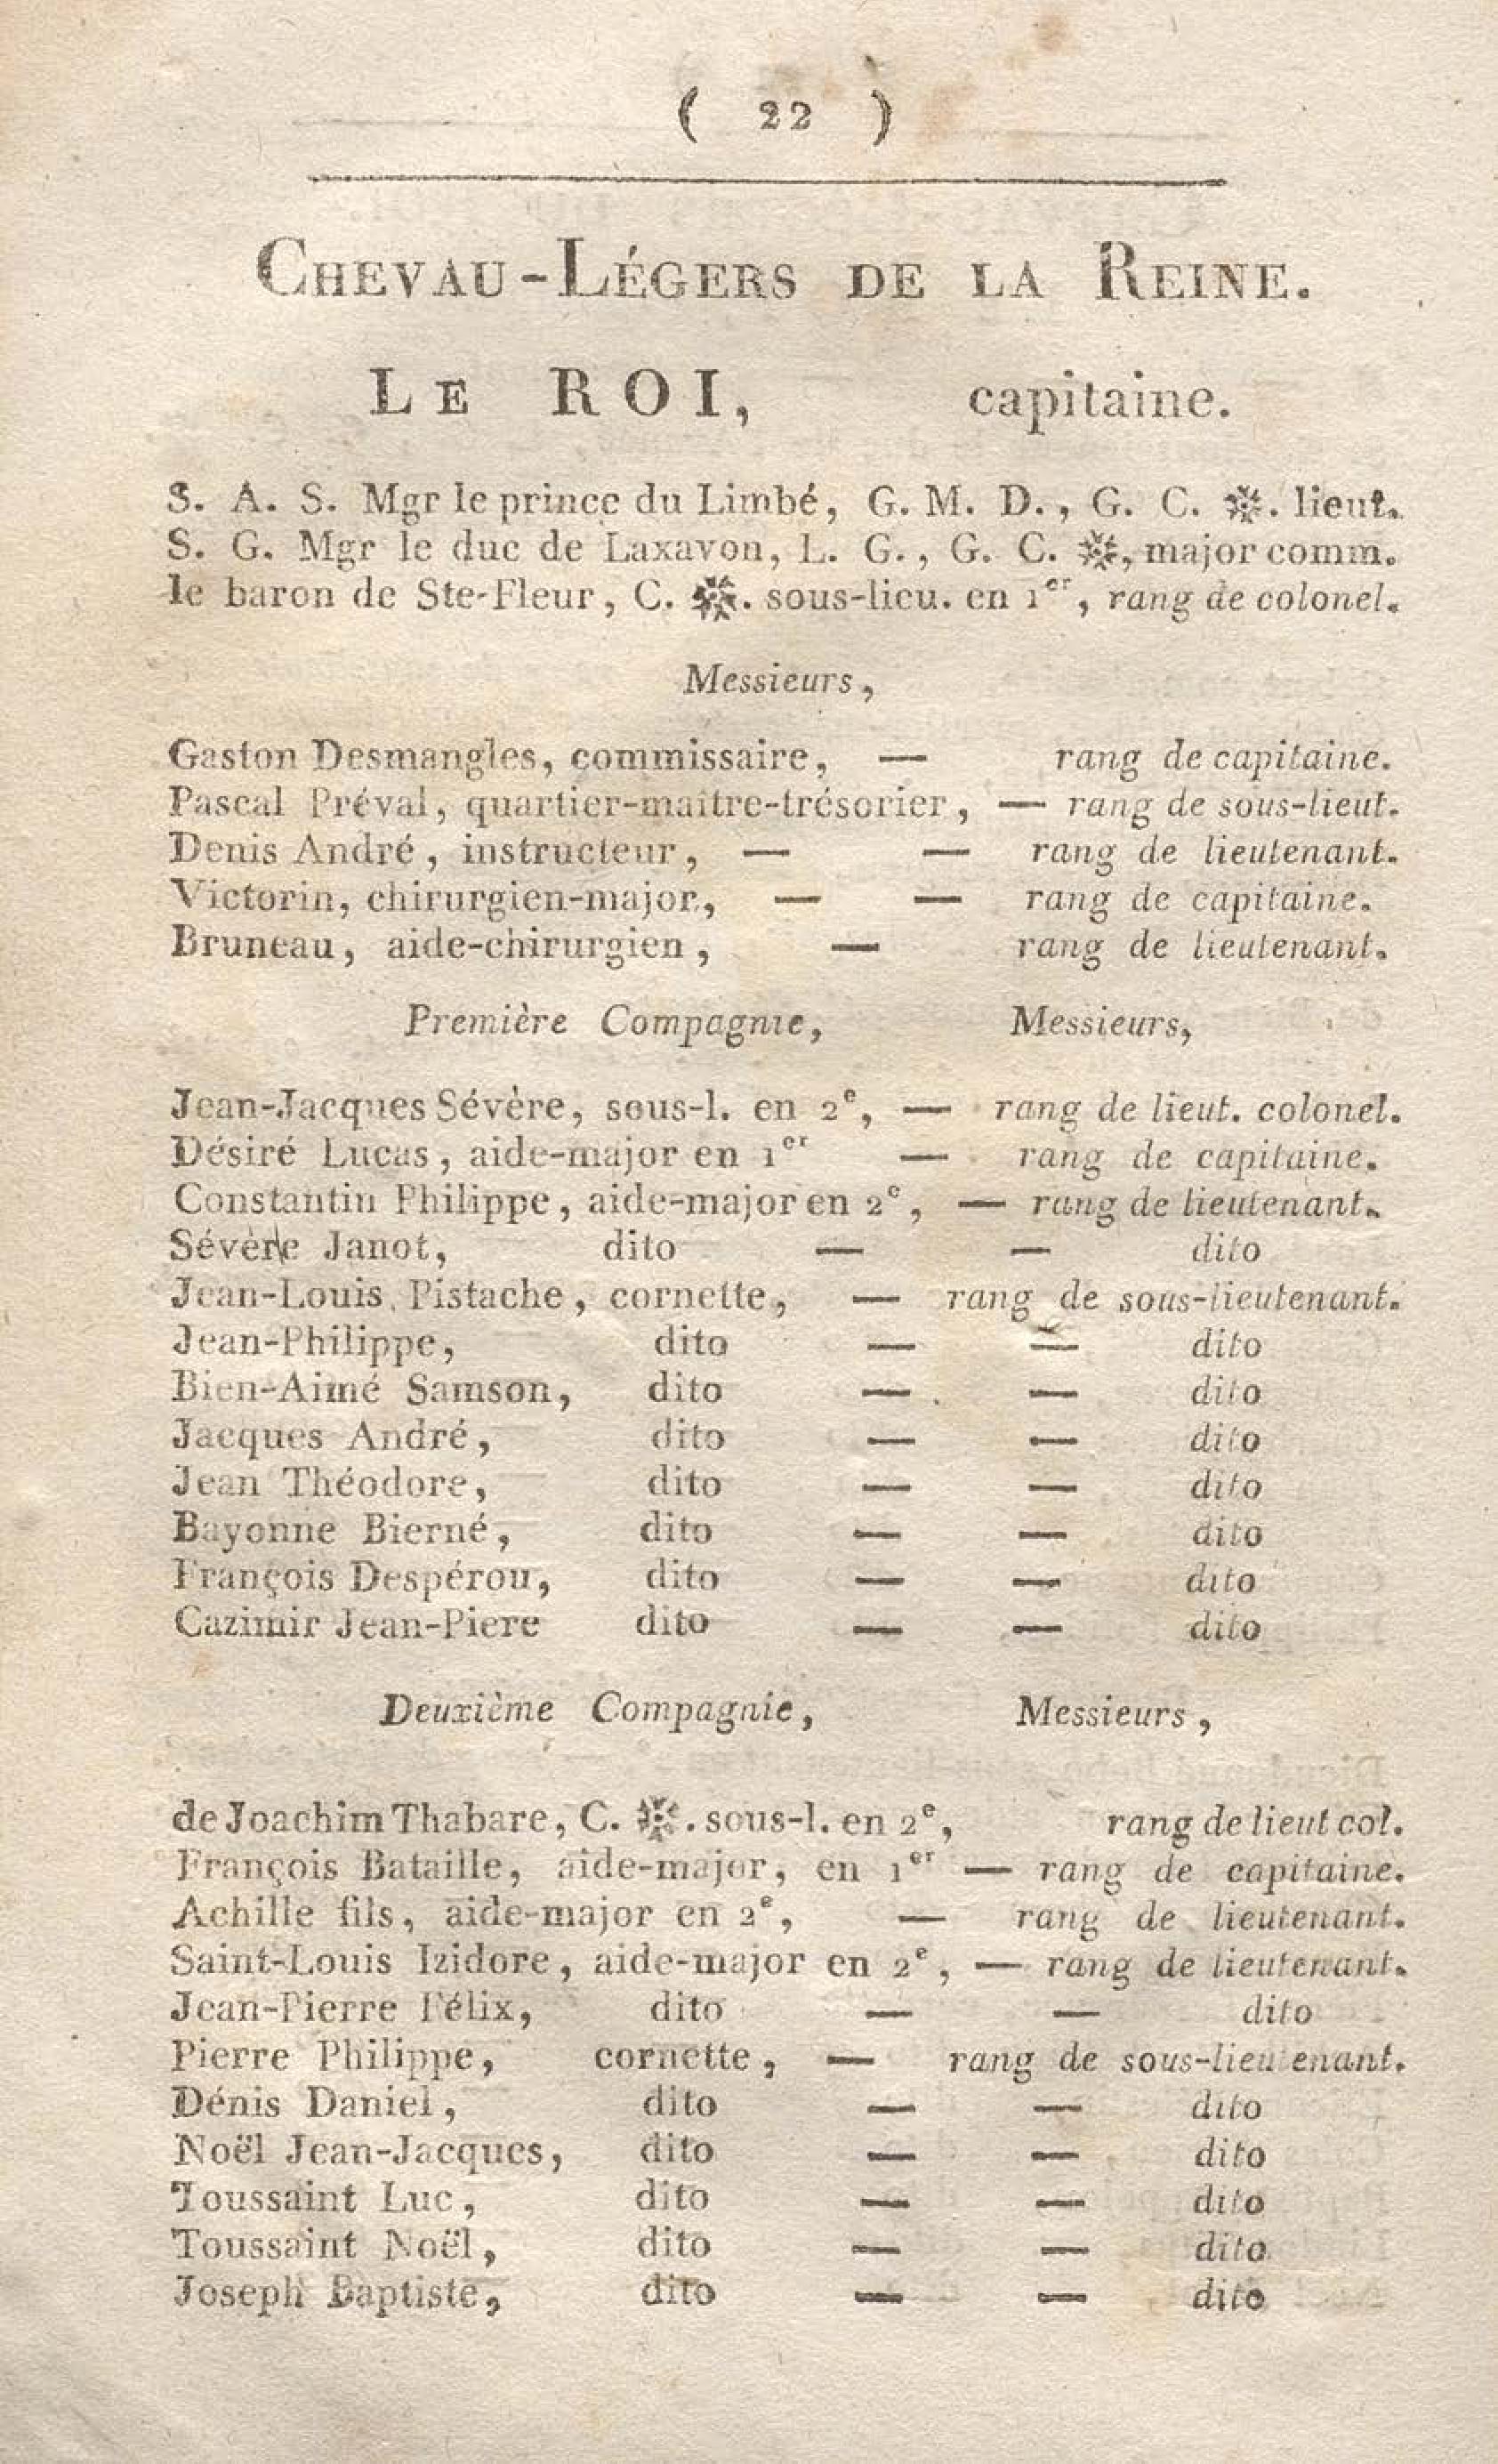 ( 22 )
CHEVAU-LÉGERS DE LA REINE.
LE ROI, capitaine.
S. A. S. Mgr le prince du Limbé, G. M. D., G. C. ❊. lieut.
S. G. Mgr le duc de Laxavon, L. G., G. C. ❊, major comm.
le baron de Ste-Fleur, C. ❊. sous-lieu. en 1er, rang de colonel.
Messieurs,
Gaston Desmangles, commissaire, — rang de capitaine.
Pascal Préval, quartier-maître-trésorier, — rang de sous-lieut.
Denis André, instructeur, — — rang de lieutenant.
Victorin, chirurgien-major, — — rang de capitaine.
Bruneau, aide-chirurgien, — rang de lieutenant.
Première Compagnie, Messieurs,
Jean-Jacques Sévère, sous-l. en 2e, — rang de lieut. colonel.
Désiré Lucas, aide-major en 1er — rang de capitaine.
Constantin Philippe, aide-major en 2e, — rang de lieutenant.
Sévère Janot, dito — — dito
Jean-Louis Pistache, cornette, — rang de sous-lieutenant.
Jean-Philippe, dito — — dito
Bien-Aimé Samson, dito — — dito
Jacques André, dito — — dito
Jean Théodore, dito — — dito
Bayonne Bierné, dito — — dito
François Despérou, dito — — dito
Cazimir Jean-Piere dito — — dito
Deuxième Compagnie, Messieurs,
de Joachim Thabare, C. ❊. sous-l. en 2e, rang de lieut col.
François Bataille, aide-major, en 1er — rang de capitaine.
Achille fils, aide-major en 2e, — rang de lieutenant.
Saint-Louis Izidore, aide-major en 2e, — rang de lieutenant.
Jean-Pierre Félix, dito — — dito
Pierre Philippe, cornette, — rang de sous-lieu enant.
Dénis Daniel, dito — — dito
Noël Jean-Jacques, dito — — dito
Toussaint Luc, dito — — dito
Toussaint Noël, dito — — dito
Joseph Baptiste, dito — — dito